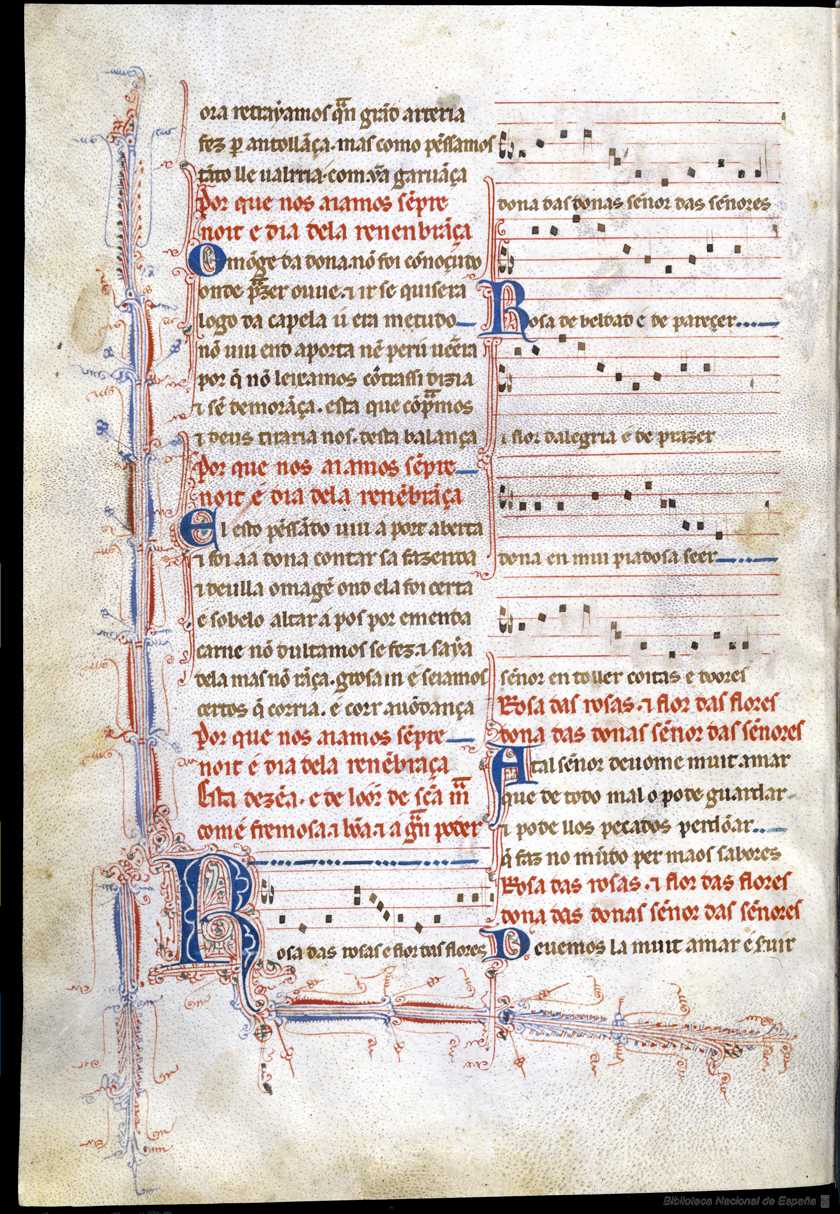 ora retrayamos q̃n grãd arteria
fez p̲ antollãça. mas como pẽssamos
tãto lle ualrria. com ỹa garuãça
Por que nos aiamos sẽpre
noit e dia dela renenbrãça
Omõge da dona. nõ foi cõnoçudo
onde p̃zer ouue. ⁊ ir se quisera
logo da capela u era metudo
nõ uiu end aporta nẽ per u uẽera
por q̃ nõ leixamos cõtrassi dizia
⁊ sẽ demorãça. esta que cõp̃mos
⁊ deus tiraria nos. desta balança
Por que nos aiamos sẽpre
noit e dia dela renẽbrãça
El esto pẽssãdo uiu a port aberta
⁊ foi aa dona contar sa fazenda
⁊ deulla omagẽ ond ela foi certa
e sobelo altar a pos por emenda
carne nõ dultamos se fez. ⁊ saỹa
dela mas nõ rãça. grossa in e seiamos
certos q̃ corria. e corr auõdança
Por que nos aiamos sẽpre
noit e dia dela renẽbrãça
Esta dezẽa. e de loor de scã m̃
com é fremosa. ⁊ bõa. ⁊ a g̃n poder
Rosa das rosas e flor das flores
dona das donas señor das señores
Rosa de beldad e de pareçer
⁊ flor dalegria e de prazer
dona en mui piadosa seer
señor en toller coitas e doores
Rosa das rosas. ⁊ flor das flores
dona das donas señor das señores
Atal señor deuome muit amar
que de todo mal o pode guardar
⁊ pode llos pecados perdõar
q̃ faz no mũdo per maos sabores
Rosa das rosas. ⁊ flor das flores
dona das donas señor das señores
Deuemos la muit amar e suir
Biblioteca Nacional de España